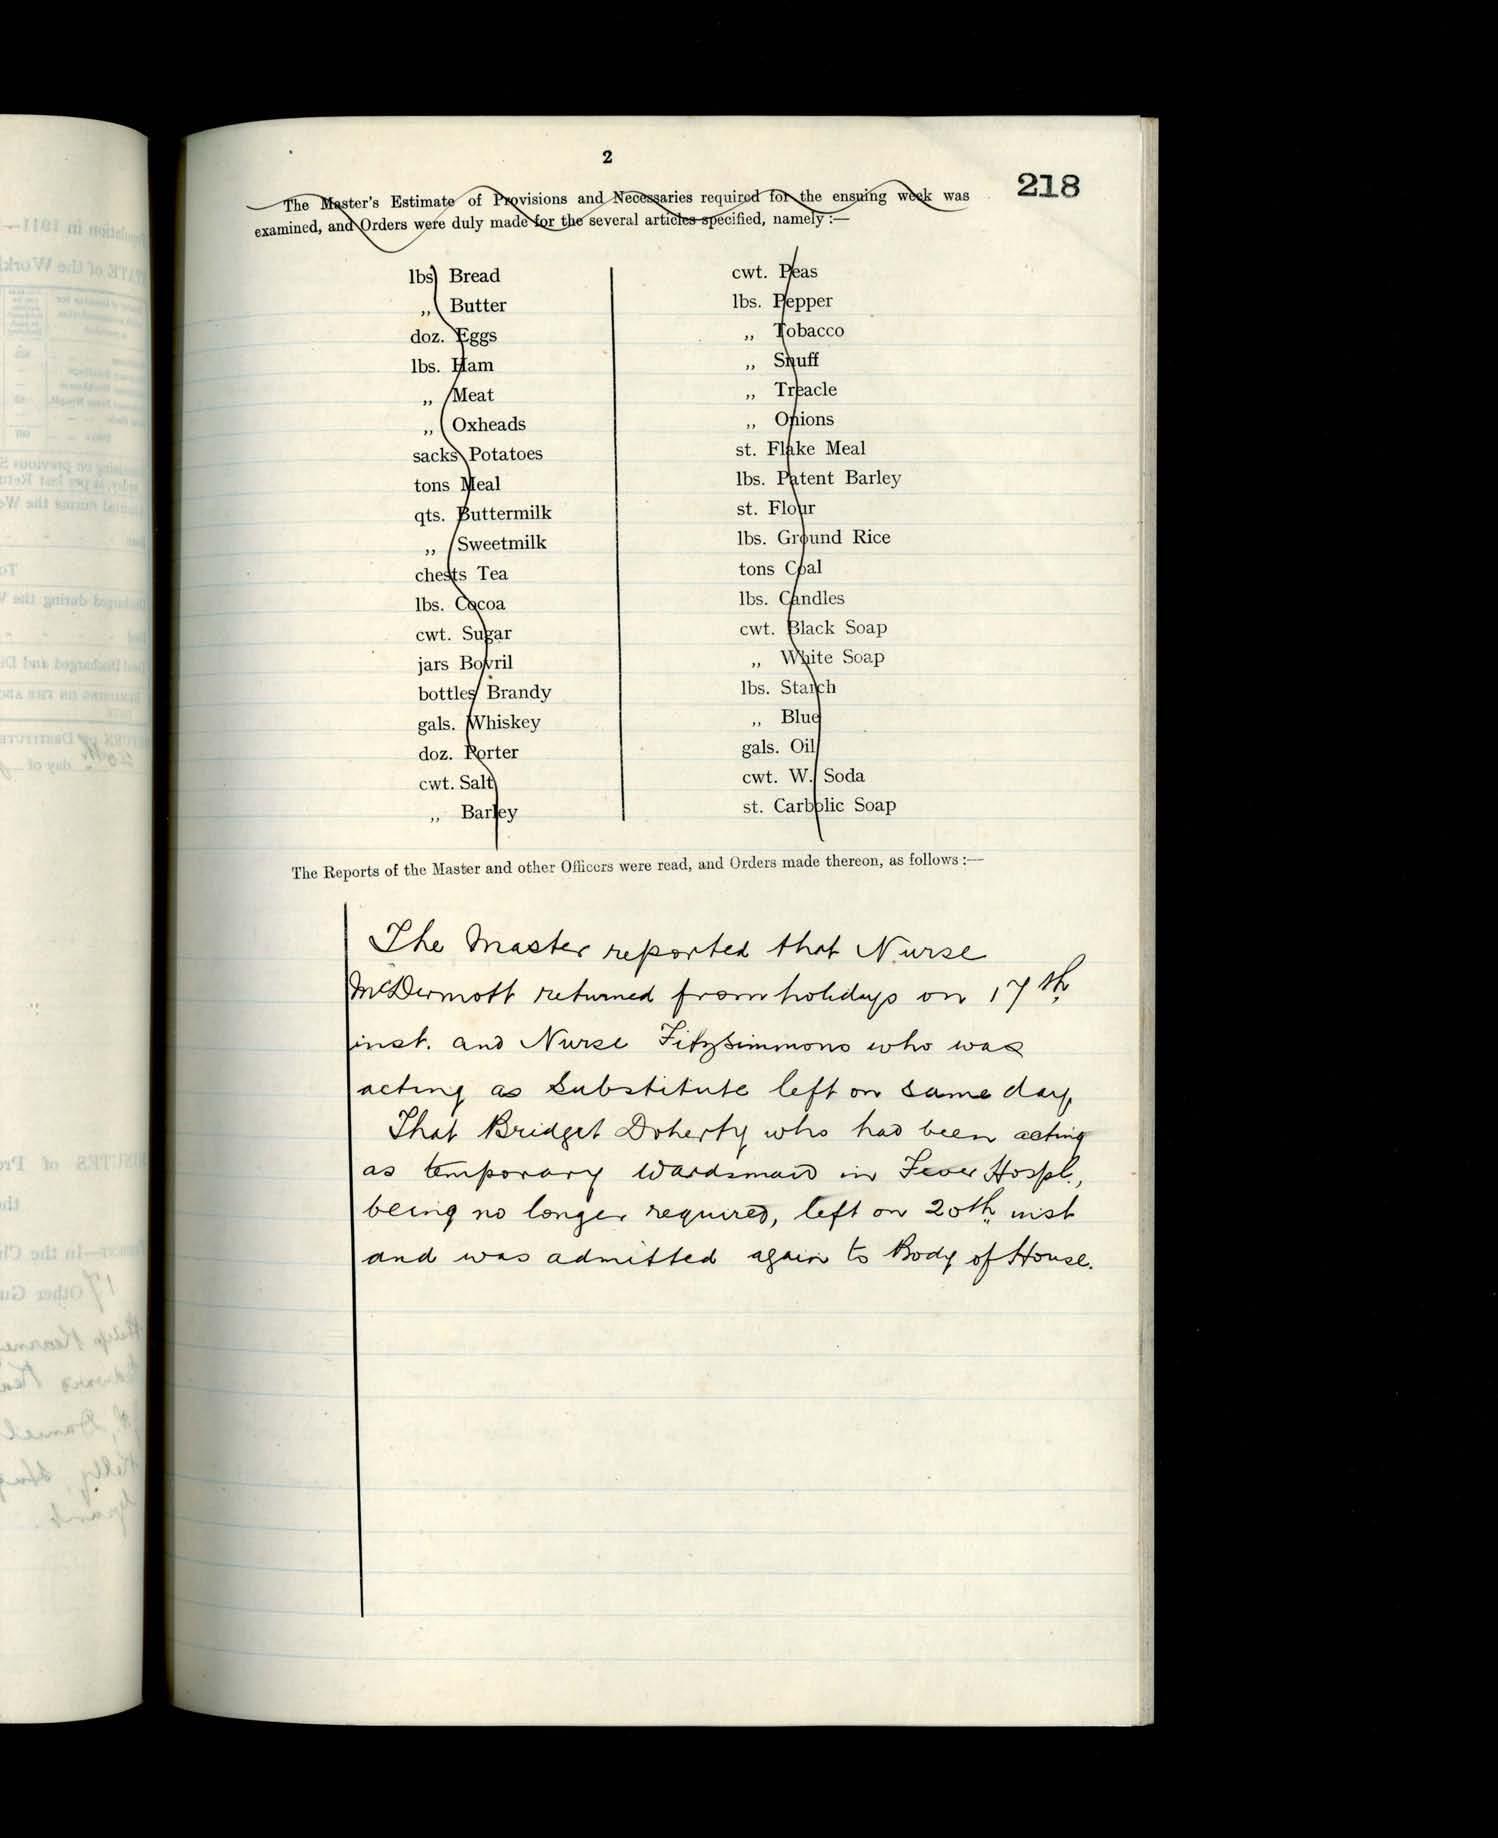 2
218
The Master's Estimate of Provisions and Necessaries required for the ensuing week was
examined, and Orders were duly made for the several articles specified, namely :—
lbs. Bread
„ Butter
doz. Eggs
lbs. Ham
„ Meat
„ Oxheads
sacks Potatoes
tons Meal
qts. Buttermilk
„ Sweetmilk
chests Tea
lbs. Cocoa
cwt. Sugar
jars Bovril
bottles Brandy
gals. Whiskey
doz. Porter
cwt. Salt
„ Barley
cwt. Peas
lbs. Pepper
„ Tobacco
„ Snuff
„ Treacle
„ Onions
st. Flake Meal
lbs. Patent Barley
st. Flour
lbs. Ground Rice
tons Coal
lbs. Candles
cwt. Black Soap
„ White Soap
lbs. Starch
„ Blue
gals. Oil
cwt. W. Soda
st. Carbolic Soap
The Reports of the Master and other Officers were read, and Orders made thereon, as follows :—
The Master reported that Nurse
McDermott returned from holidays on 17th
inst. and Nurse Fitzsimmons who was
acting as Substitute left on same day.
That Bridget Doherty who had been acting
as temporary Wardsmaid in Fever Hospl.,
being no longer required, left on 20th inst
and was admitted again to Body of House.